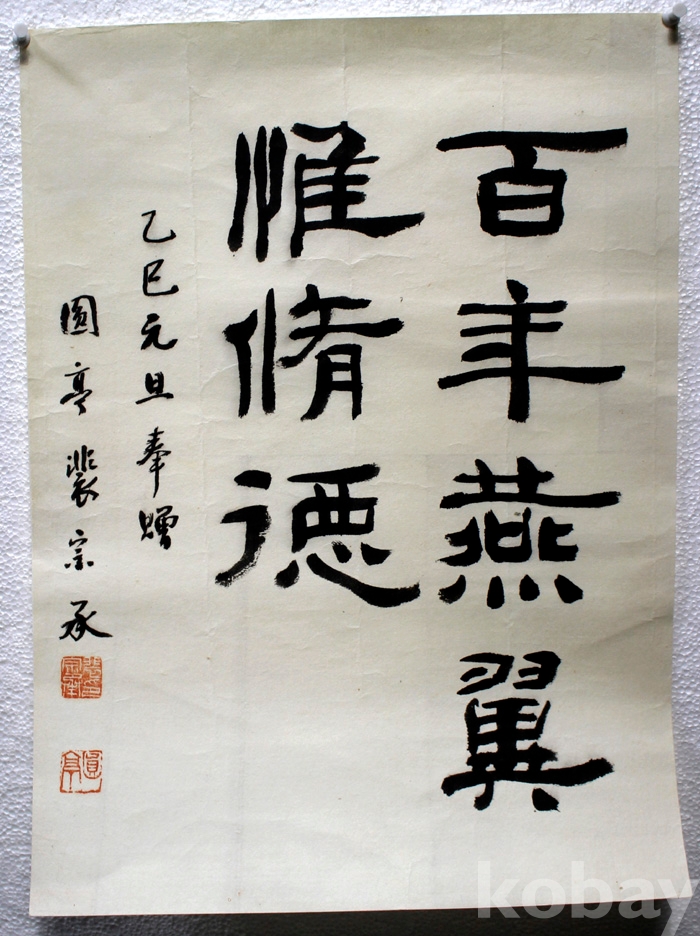 百年燕翼
惟脩德
乙巳元旦奉贈
圓亭裴宗承
圓亭
kobay